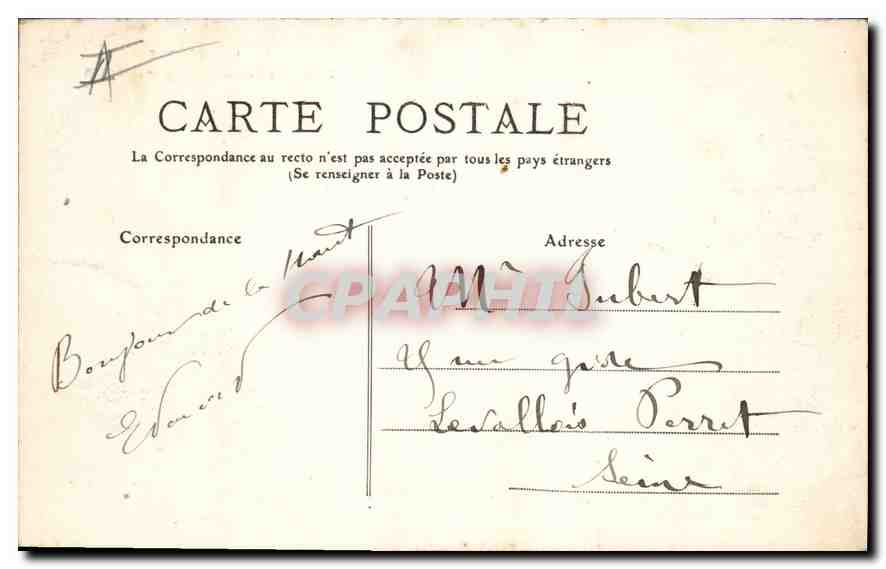 CARTE POSTALE
La Correspondance au recto n'est pas acceptée par tous les pays étrangers
(Se renseigner à la Poste)
Correspondance
Bonjour de la
Edouard
Adresse
Mr Jubert
rue
Levallois Perret
Seine
CPAPHIL